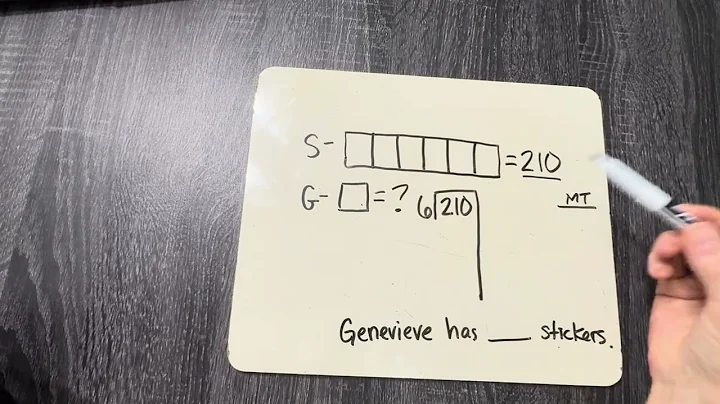 S- = 210
MT
G- = ? 6 210
Genevieve has ___ stickers.